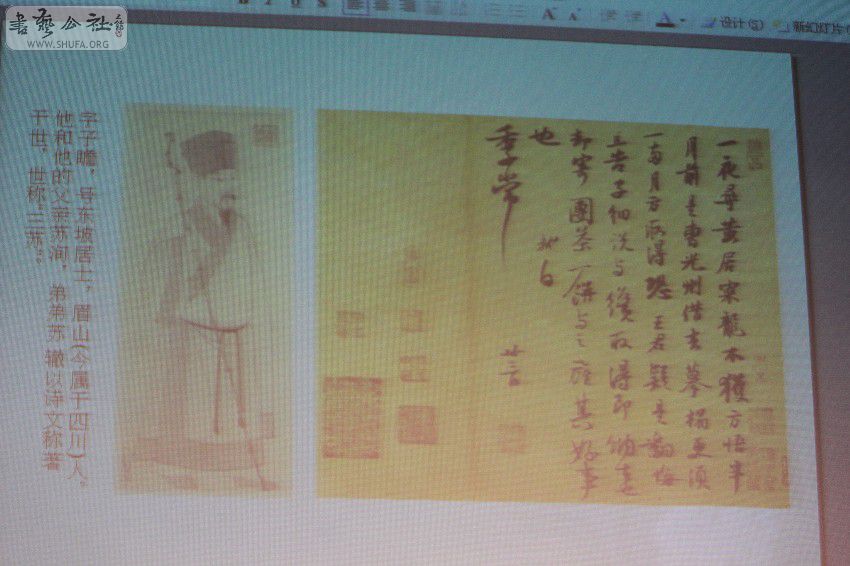 書藝公社
WWW.SHUFA.ORG
设计(S) 新幻灯片(
一夜尋黄居寀龍不獲方悟半
月前是曹光州借去摹搨更須
一兩月方取得恐王君疑是翻悔
且告子細說與纔取得即納去也
却寄團茶一餅與之旌其好事
也 軾白
季常 廿三日
字子瞻,号东坡居士,眉山(今属于四川)人。
他和他的父亲苏洵,弟弟苏 辙以诗文称著
于世,世称“三苏”。